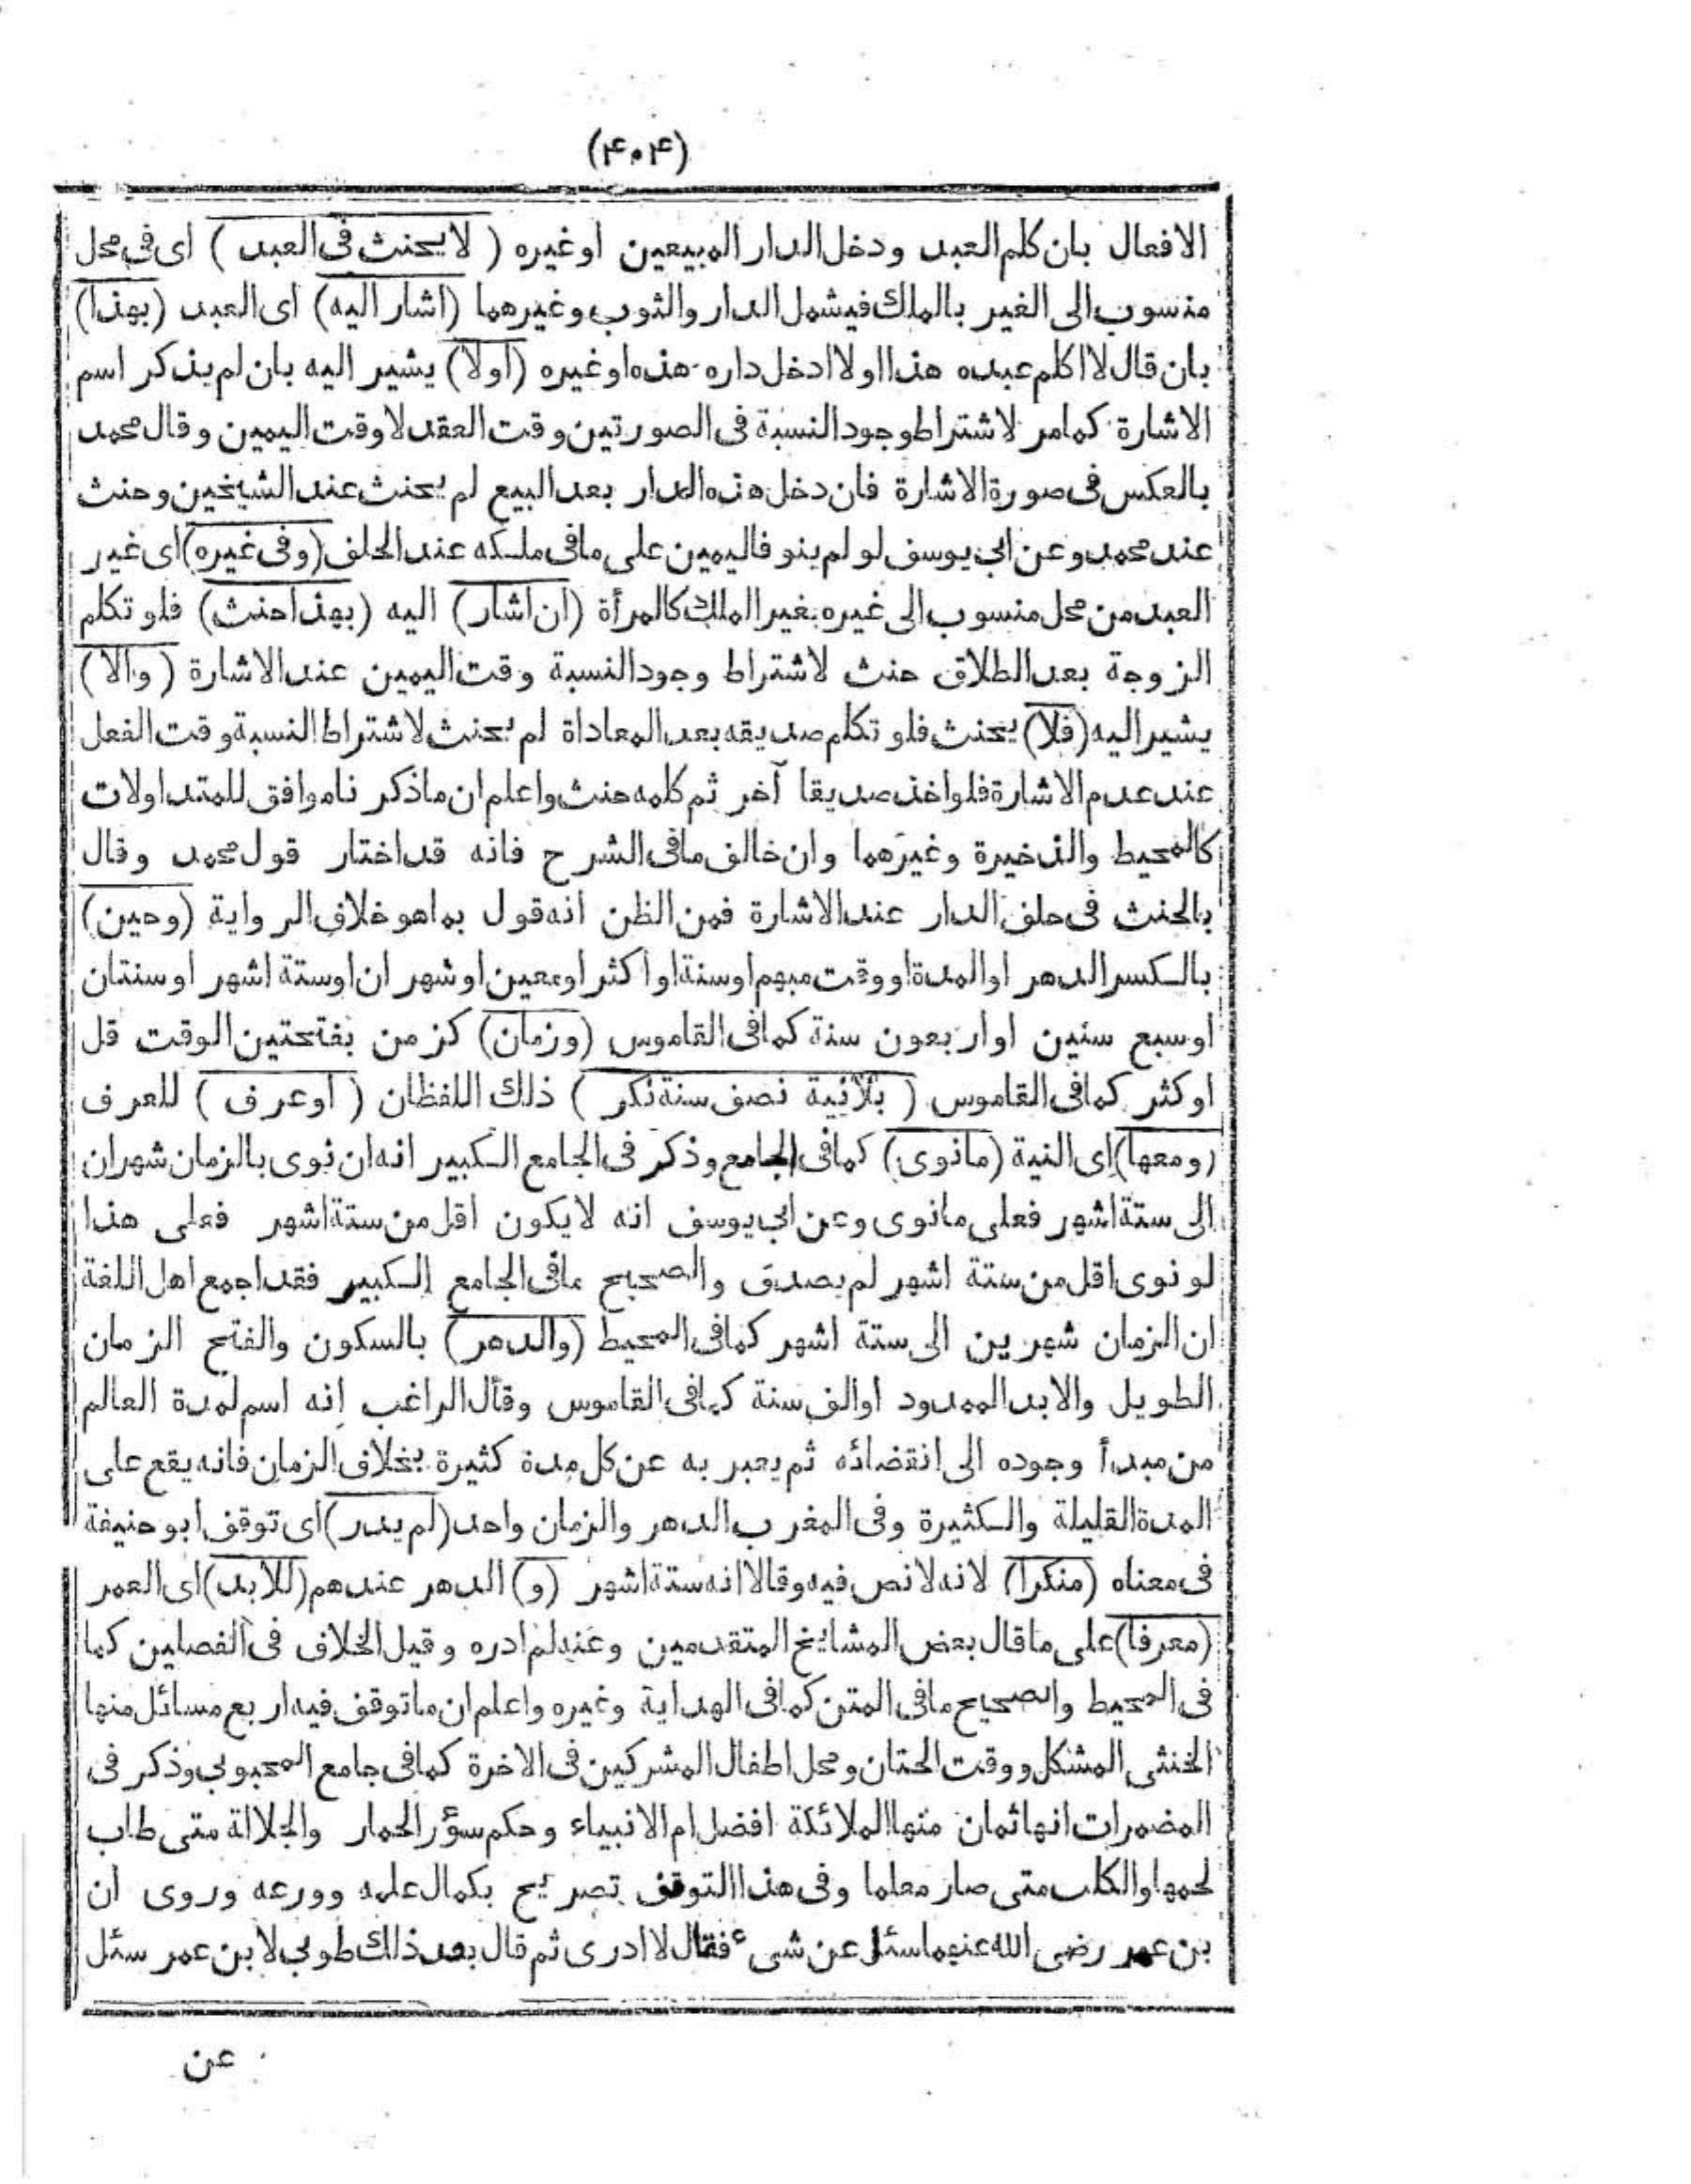 (۴۰۴)
الافعال بان كلم العبد ودخل الدار المبيعين اوغيره ( لايحنث فى العبد ) اى فى محل
منسوب الى الغير بالملك فيشمل الدار والثوب وغيرهما (اشار اليه) اى العبد (بهذا)
بان قال لا اكلم عبده هذا او لا ادخل داره هذه او غيره (اولا) يشير اليه بان لم يذكر اسم
الاشارة كمامر لاشتراط وجود النسبة فى الصورتين وقت العقد لا وقت اليمين وقال محمد
بالعكس فى صورة الاشارة فان دخل هذه الدار بعد البيع لم يحنث عند الشيخين وحنث
عند محمد وعن ابى يوسف لو لم ينو فاليمين على مافى ملكه عند الحلف (وفى غيره) اى غير
العبد من محل منسوب الى غيره بغير الملك كالمرأة (ان اشار) اليه (بهذا حنث) فلو تكلم
الزوجة بعد الطلاق حنث لاشتراط وجود النسبة وقت اليمين عند الاشارة (والا)
يشير اليه (فلا) يحنث فلو تكلم صديقه بعد المعاداة لم يحنث لاشتراط النسبة وقت الفعل
عند عدم الاشارة فلو اخذ صديقا آخر ثم كلمه حنث واعلم ان ماذكر نا موافق للمتداولات
كالمحيط والذخيرة وغيرهما وان خالف مافى الشرح فانه قد اختار قول محمد وقال
بالحنث فى حلف الدار عند الاشارة فمن الظن انه قول بما هو خلاف الرواية (وحين)
بالكسر الدهر او المدة او وقت مبهم او سنة او اكثر او معين او شهر ان او ستة اشهر او سنتان
اوسبع سنين او اربعون سنة كما فى القاموس (وزمان) كزمن بفتحتين الوقت قل
اوكثر كما فى القاموس ( بلانية نصف سنة نكر ) ذلك اللفظان ( اوعرف ) للعرف
(ومعها) اى النية (مانوى) كما فى الجامع وذكر فى الجامع الكبير انه ان نوى بالزمان شهران
الى ستة اشهر فعلى مانوى وعن ابى يوسف انه لايكون اقل من ستة اشهر فعلى هذا
لو نوى اقل من ستة اشهر لم يصدق والصحيح مافى الجامع الكبير فقد اجمع اهل اللغة
ان الزمان شهرين الى ستة اشهر كما فى المحيط (والدهر) بالسكون والفتح الزمان
الطويل والابد الممدود او الف سنة كما فى القاموس وقال الراغب انه اسم لمدة العالم
من مبدأ وجوده الى انقضائه ثم يعبر به عن كل مدة كثيرة بخلاف الزمان فانه يقع على
المدة القليلة والكثيرة وفى المغرب الدهر والزمان واحد (لم يدر) اى توقف ابو حنيفة
فى معناه (منكرا) لانه لانص فيه وقالا انه ستة اشهر (و) الدهر عندهم (للابد) اى العمر
(معرفا) على ماقال بعض المشايخ المتقدمين وعنه لم ادره وقيل الخلاف فى الفصلين كما
فى المحيط والصحيح مافى المتن كما فى الهداية وغيره واعلم ان ماتوقف فيه اربع مسائل منها
الخنثى المشكل ووقت الختان ومحل اطفال المشركين فى الاخرة كما فى جامع المحبوبى وذكر فى
المضمرات انها ثمان منها الملائكة افضل ام الانبياء وحكم سؤر الحمار والجلالة متى طاب
لحمها والكلب متى صار معلما وفى هذا التوقف تصريح بكمال علمه وورعه وروى ان
بن عمر رضى الله عنهما سئل عن شىء فقال لا ادرى ثم قال بعد ذلك طوبى لابن عمر سئل
عن